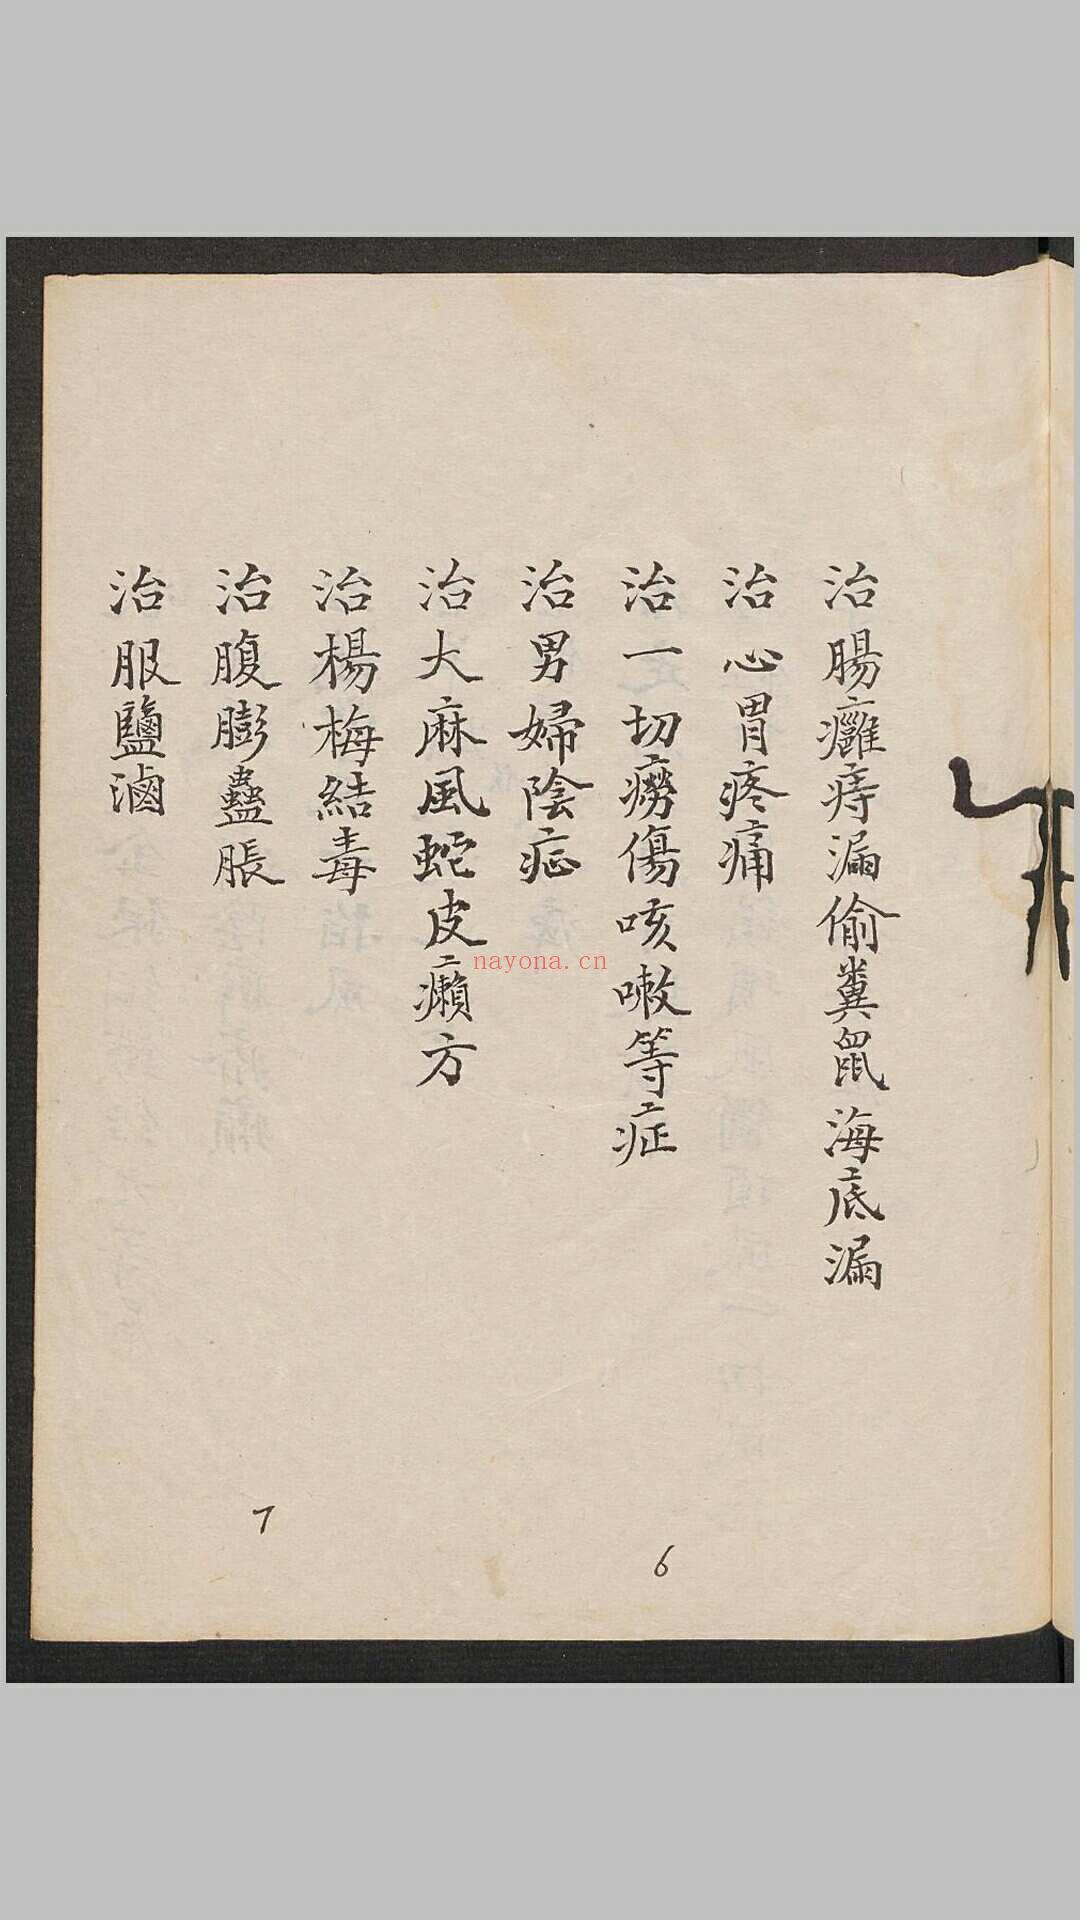 治腸癰痔漏偷糞鼠海底漏
治心胃疼痛
治一切癆傷咳嗽等症
治男婦陰症
治大麻風蛇皮癩方
治楊梅結毒
治腹膨蠱脹
治服鹽滷
7
6
nayona.cn